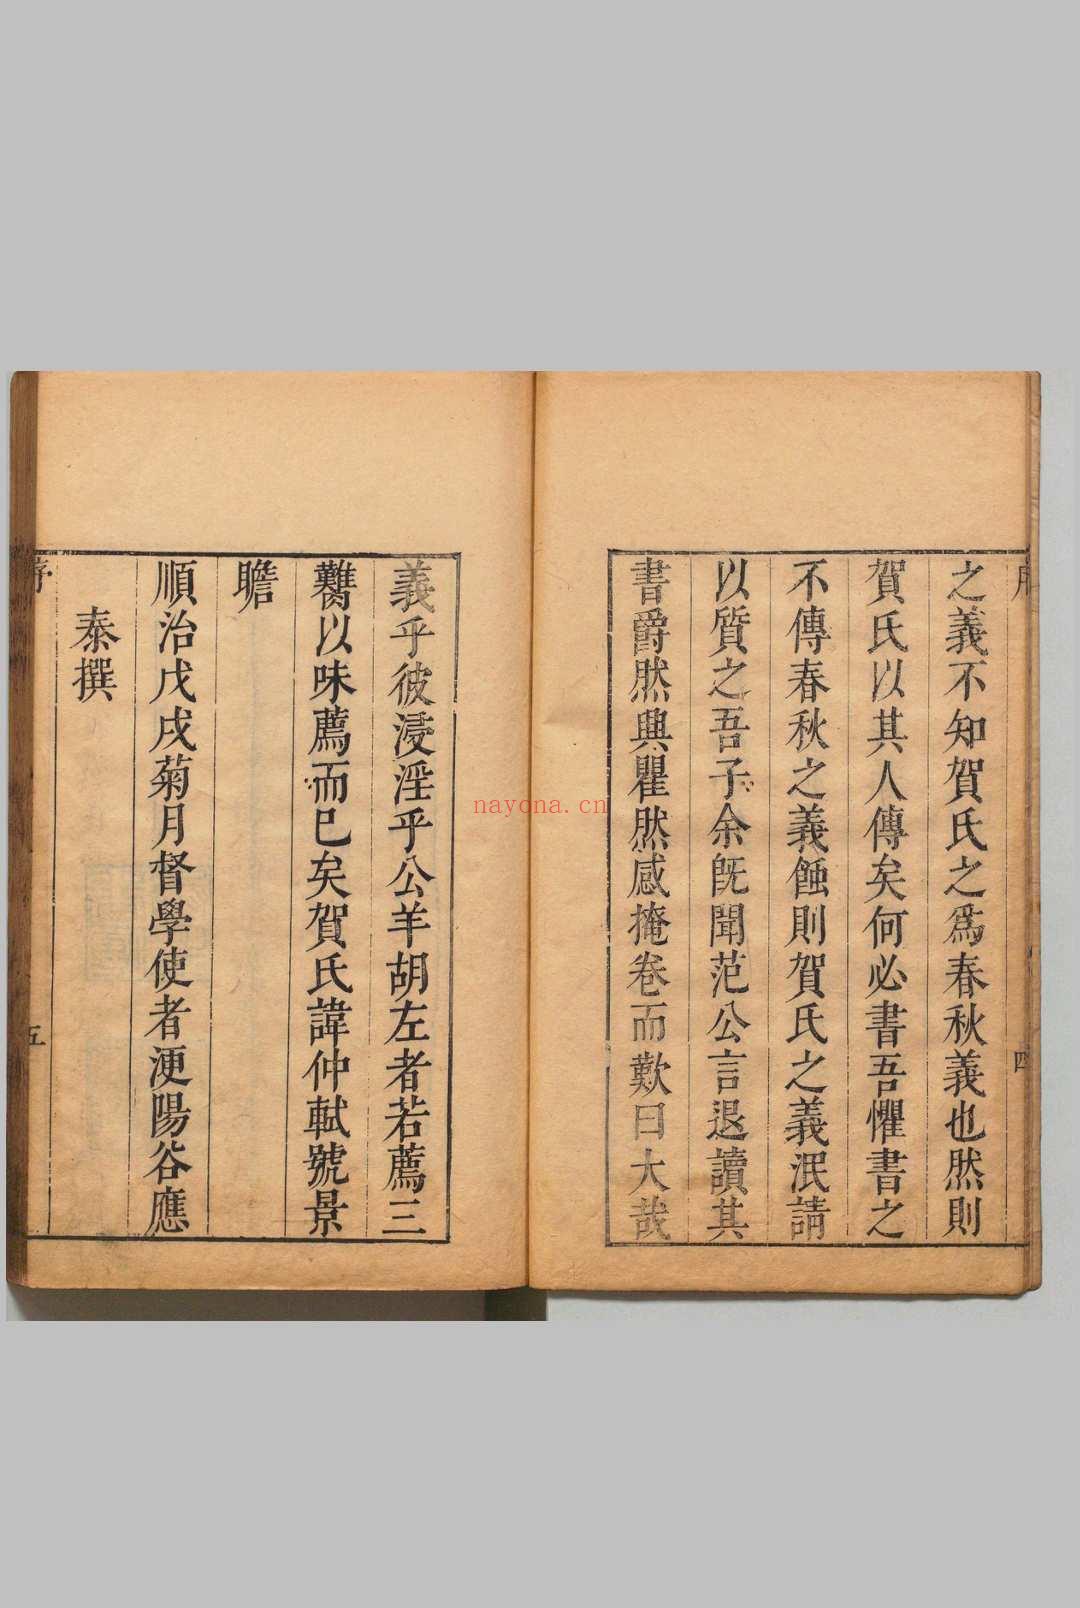 之義不知賀氏之爲春秋義也然則
賀氏以其人傳矣何必書吾懼書之
不傳春秋之義蝕則賀氏之義泯請
以質之吾子余旣聞范公言退讀其
書爵然興瞿然感掩卷而歎曰大哉
四
義乎彼浸淫乎公羊胡左者若薦三
臡以味薦而已矣賀氏諱仲軾號景
瞻
順治戊戌菊月督學使者浭陽谷應
泰撰
序
五
nayona.cn